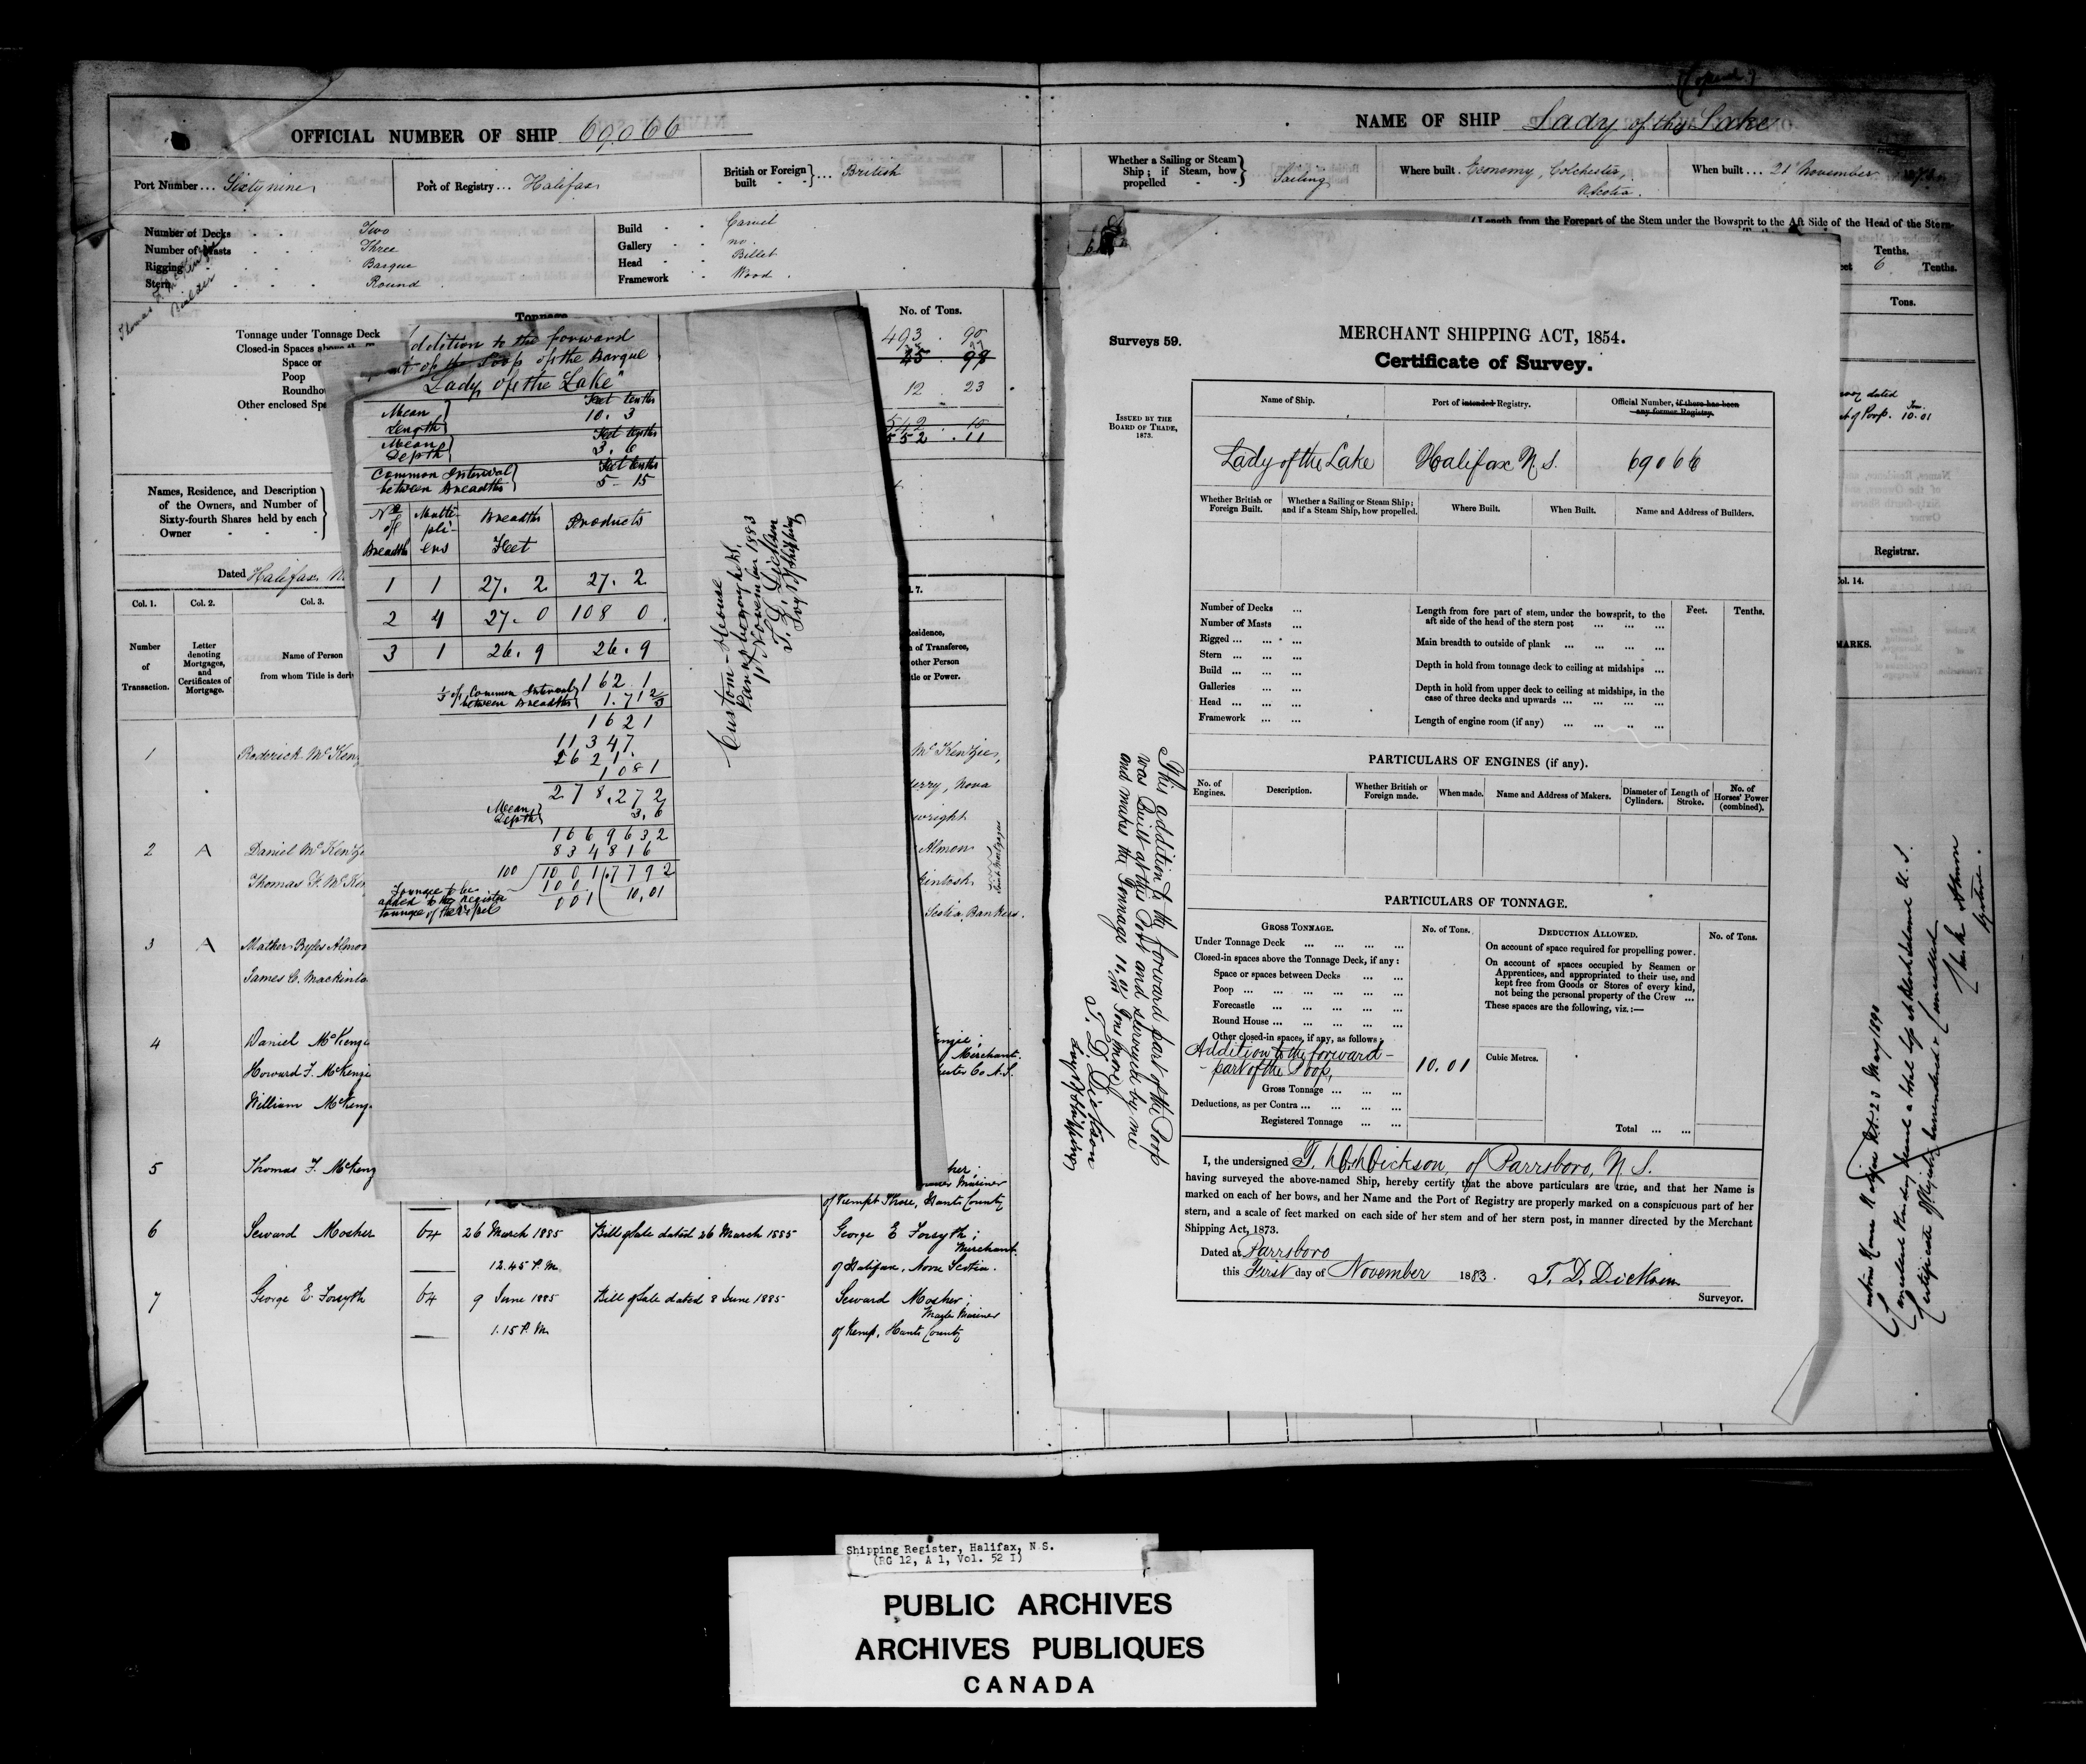 OFFICIAL NUMBER OF SHIP 69066
Port Number... Sixty nine
Port of Registry... Halifax
British or Foreign built ... British
Number of Decks Two
Number of Masts Three
Rigging Barque
Stern Round
Build Carvel
Gallery no
Head Billet
Framework Wood
Thomas F. McKenzie
Builder
Tonnage
No. of Tons.
Tonnage under Tonnage Deck
493 . 90
Closed-in Spaces above the
Space or
Poop
Roundhou
12 . 23
Other enclosed Spa
542 . 10
552 . 11
Names, Residence, and Description
of the Owners, and Number of
Sixty-fourth Shares held by each
Owner
Dated Halifax
Col. 1.
Col. 2.
Col. 3.
Number
of
Transaction.
Letter
denoting
Mortgages,
and
Certificates of
Mortgage.
Name of Person
from whom Title is deri
. 7.
Residence,
n of Transferee,
other Person
tle or Power.
1 Roderick McKen
McKenzie,
erry, Nova
wright
2 A Daniel McKenz
Almon
Thomas F. McKen
Scotia, Bankers.
3 A Mather Byles Almon
James C. Mackinto
4 Daniel McKenzi
Howard F. McKenzie
of Merchant
William McKenz
5 Thomas F. McKenz
of Kempt Shore, Hants County
6 Seward Mosher 64 26 March 1885 Bill of Sale dated 26 March 1885 George E Forsyth ;
Merchant
12.45 P.M. of Halifax, Nova Scotia.
7 George E Forsyth 64 9 June 1885 Bill of Sale dated 8 June 1885 Seward Mosher ;
Master Mariner
1.15 P.M. of Kemp, Hants County
ddition to the forward
part of the Poop of the Barque
"Lady of the Lake"
Mean Length
Feet tenths
10. 3
Mean Depth
Feet tenths
3. 6
Common Interval
between Breadths
Feet tenths
5- 15
No of Breadths
Multipliers
Breadths Feet
Products
1 1 27. 2 27. 2
2 4 27. 0 108 0
3 1 26. 9 26. 9
162 1
1/3 of Common Interval
between Breadths
1.71 2/3
1621
11347
1621
1081
278.272
Mean Depth 3,6
1669632
834816
100 1001.7792
100 10,01
001
Tonnage to be
added to the register
tonnage of the vessel
Custom-House
Parrsborough N.S.
1st November 1883
T. D. Dickson
Svyr of Shipping
NAME OF SHIP Lady of the Lake
Whether a Sailing or Steam
Ship; if Steam, how
propelled
Sailing
Where built. Economy, Colchester,
N Scotia.
When built ... 21 November
(Length from the Forepart of the Stem under the Bowsprit to the Aft Side of the Head of the Stern-
Tenths.
6 Tenths.
Tons.
dated
of Poop. 10.01
Registrar.
Col. 14.
MARKS.
Surveys 59.
MERCHANT SHIPPING ACT, 1854.
Certificate of Survey.
ISSUED BY THE
BOARD OF TRADE,
1873.
Name of Ship.
Port of intended Registry.
Official Number, if there has been
any former Registry.
Lady of the Lake
Halifax N.S.
69066
Whether British or
Foreign Built.
Whether a Sailing or Steam Ship;
and if a Steam Ship, how propelled.
Where Built.
When Built.
Name and Address of Builders.
Number of Decks ...
Number of Masts ...
Rigged ... ... ...
Stern ... ... ...
Build ... ... ...
Galleries ... ...
Head ... ... ...
Framework ... ...
Length from fore part of stem, under the bowsprit, to the
aft side of the head of the stern post ... ... ...
Main breadth to outside of plank ... ... ... ...
Depth in hold from tonnage deck to ceiling at midships ...
Depth in hold from upper deck to ceiling at midships, in the
case of three decks and upwards ... ... ... ...
Length of engine room (if any) ... ... ... ...
Feet.
Tenths.
PARTICULARS OF ENGINES (if any).
No. of
Engines.
Description.
Whether British or
Foreign made.
When made.
Name and Address of Makers.
Diameter of
Cylinders.
Length of
Stroke.
No. of
Horses' Power
(combined).
PARTICULARS OF TONNAGE.
GROSS TONNAGE.
No. of Tons.
DEDUCTION ALLOWED.
No. of Tons.
Under Tonnage Deck ... ... ... ...
Closed-in spaces above the Tonnage Deck, if any:
Space or spaces between Decks ... ...
Poop ... ... ... ... ... ...
Forecastle ... ... ... ... ...
Round House ... ... ... ... ...
Other closed-in spaces, if any, as follows:
Addition to the forward -
- part of the Poop, 10.01
Gross Tonnage ... ... ...
Deductions, as per Contra ... ... ... ...
Registered Tonnage ... ... ...
On account of space required for propelling power.
On account of spaces occupied by Seamen or
Apprentices, and appropriated to their use, and
kept free from Goods or Stores of every kind,
not being the personal property of the Crew ...
These spaces are the following, viz.:—
Cubic Metres.
Total ... ...
I, the undersigned T. D. Dickson, of Parrsboro, N.S.
having surveyed the above-named Ship, hereby certify that the above particulars are true, and that her Name is
marked on each of her bows, and her Name and the Port of Registry are properly marked on a conspicuous part of her
stern, and a scale of feet marked on each side of her stem and of her stern post, in manner directed by the Merchant
Shipping Act, 1873.
Dated at Parrsboro
this First day of November 1883. T. D. Dickson
Surveyor.
This addition to the forward part of the Poop
was built at this Port and surveyed by me
and makes the Tonnage 10.01 Tons more
T. D. Dickson
Svyr of Shipping
Customs House Halifax N.S. 23 May 1890
Certificate of Registry
Shipping Register, Halifax, N.S.
(RG 12, A 1, Vol. 52 I)
PUBLIC ARCHIVES
ARCHIVES PUBLIQUES
CANADA